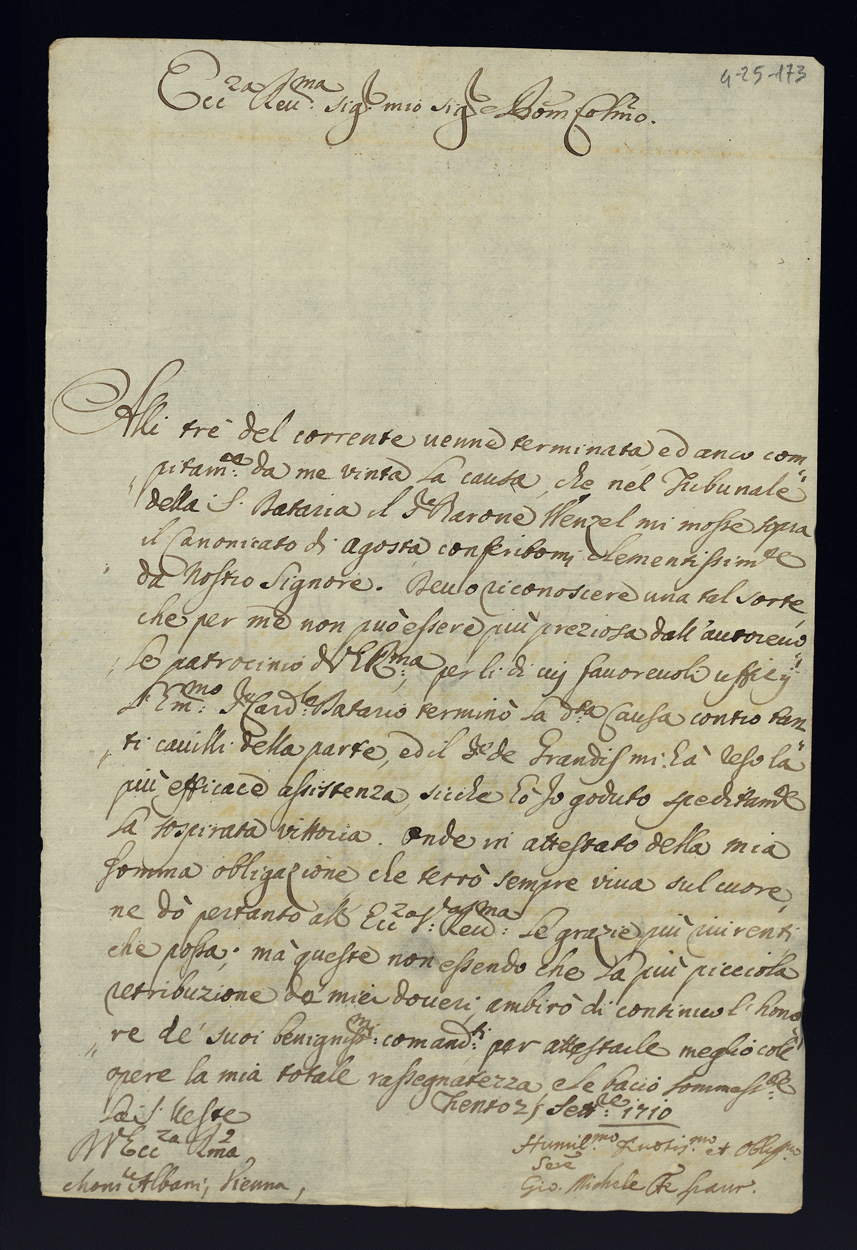 4-25-173
Ecc.za Reu.ma Sig.r mio Sig.re e Pron Colmo.
Alli tré del corrente uenne terminata, ed anco com
pitam.te da me vinta la causa, che nel Tribunale
della S. Dataria il S.r Barone Wenzel mi mosse sopra
il Canonicato di Agosta conferitomi clementissim.te
da Nostro Signore. Deuo riconoscere una tal sorte,
che per me non può essere più preziosa dall'autoreuo
le patrocinio di V.E. R.ma, per li di cuj fauoreuoli ufficij
l'Em.mo S.r Card.le Datario terminò la d.ta Causa contro tan
ti cauilli della parte, ed il S.re de Grandis mi hà reso la
più efficace assistenza, sicche hò io goduto speditam.te
la sospirata vittoria. Onde in attestato della mia
somma obligazione, che terrò sempre viua sul cuore,
ne dò pertanto all' Ecc.za V.a Reu.ma le grazie più riuerenti
che possa; mà queste non essendo che la più picciola
retribuzione de miei doueri, ambirò di continuo l'hono
re de' suoi benignis.mi comand.ti per attestarle meglio coll'
opere la mia totale rassegnatezza, e le bacio sommess.te
la S. Veste
Trento 21 Sett.re 1710
D V Ecc.za R.ma
Humil.mo Deuotis.mo et Oblig.mo
Ser.e
Mons.re Albani, Vienna,
Gio. Michele Co: Spaur.